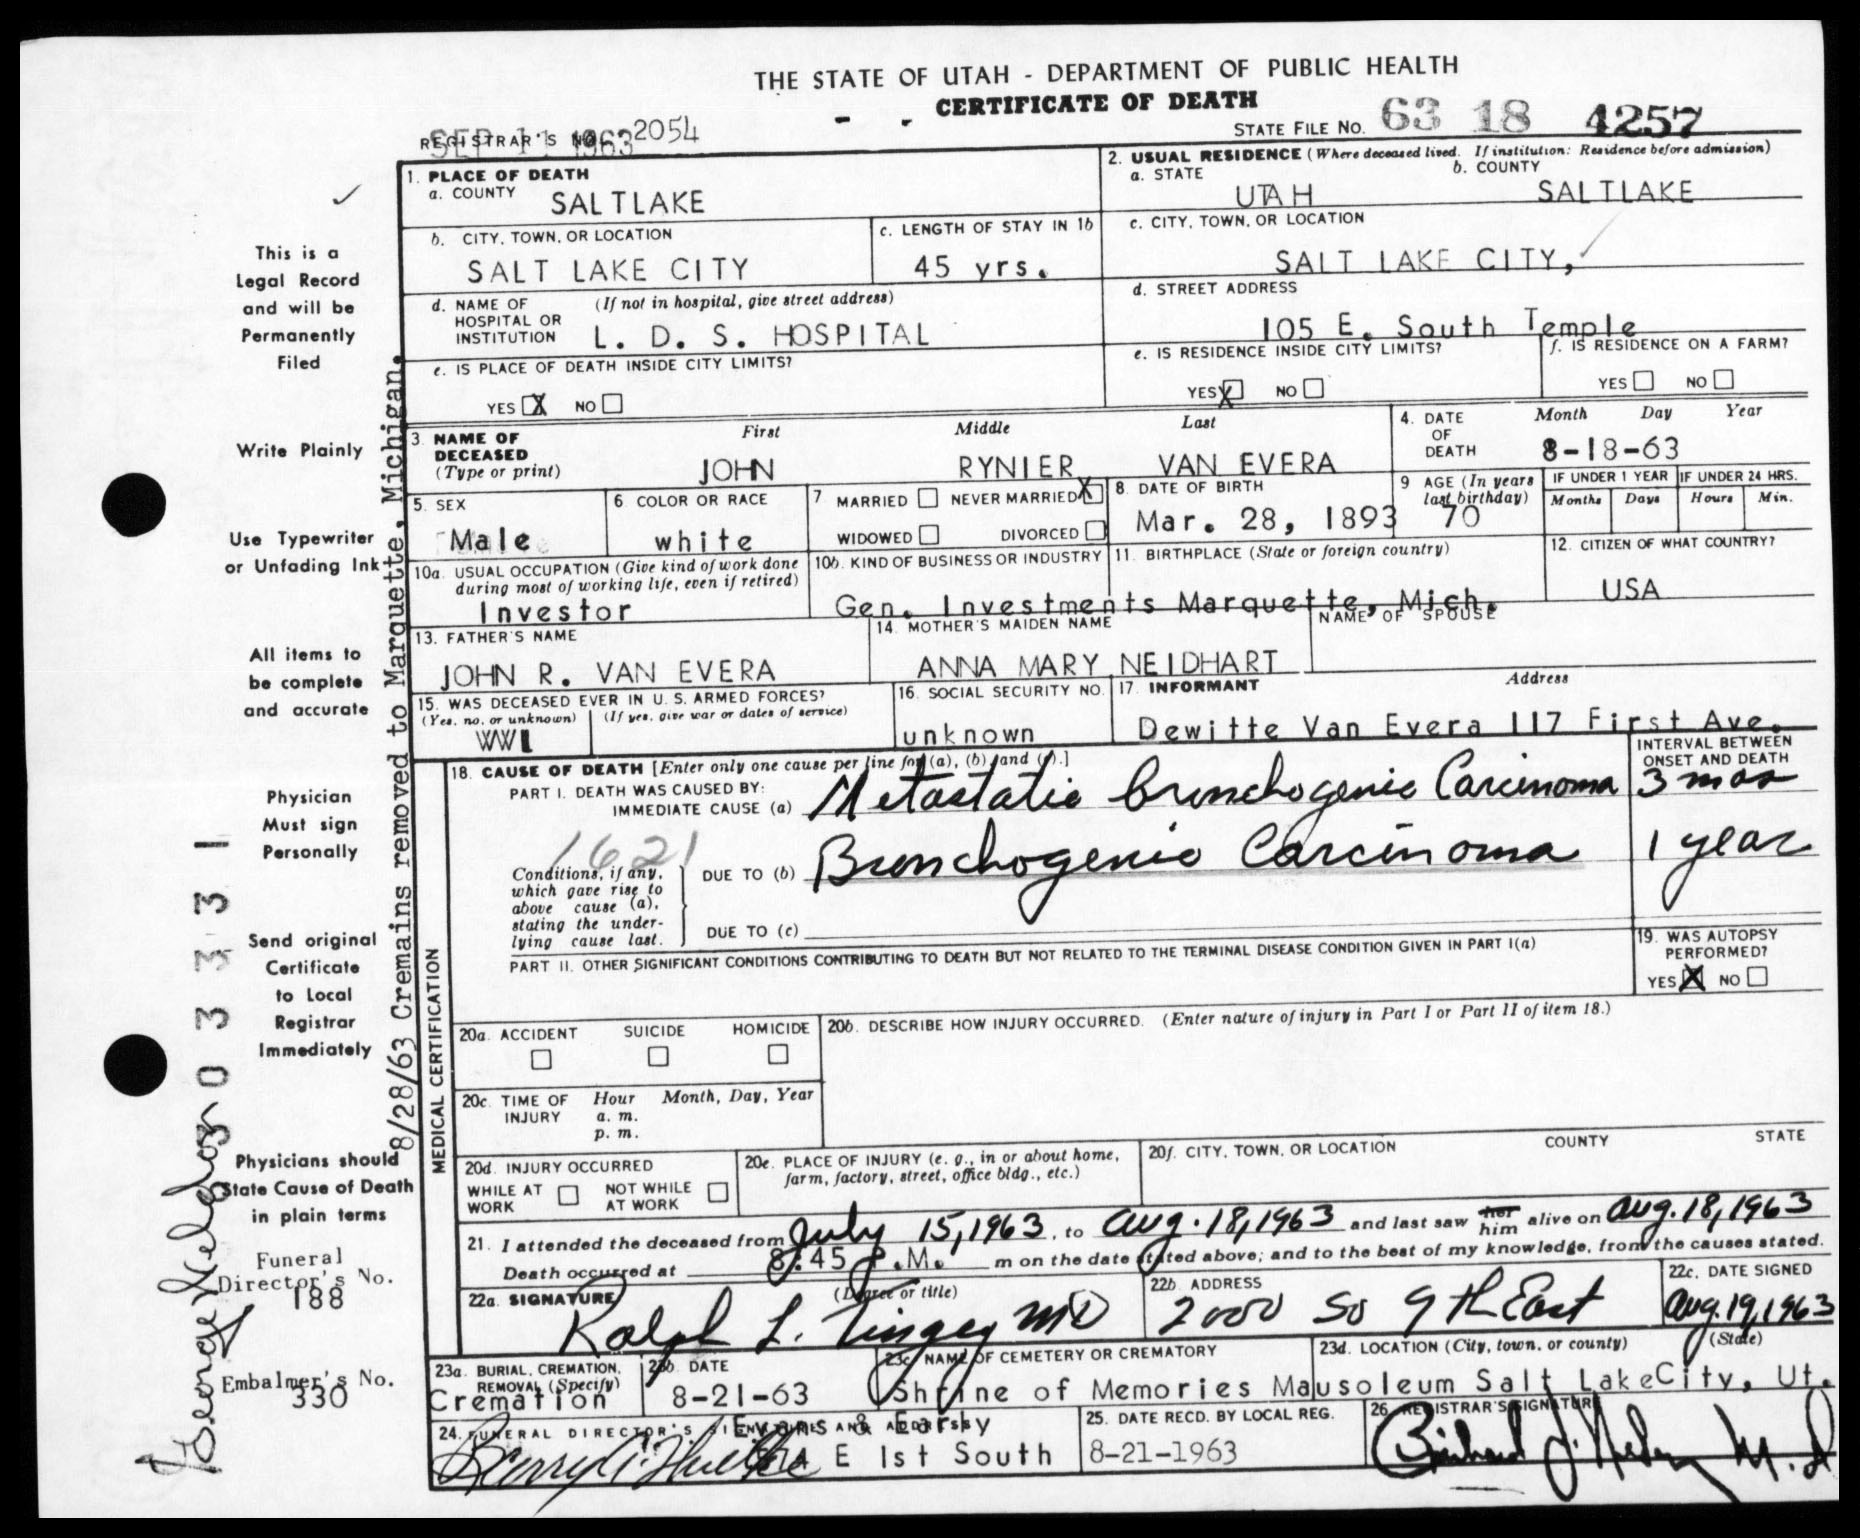 THE STATE OF UTAH - DEPARTMENT OF PUBLIC HEALTH
CERTIFICATE OF DEATH
REGISTRAR'S NO. 2054
SEP 11 1963
STATE FILE NO. 63 18 4257
1. PLACE OF DEATH
a. COUNTY SALTLAKE
2. USUAL RESIDENCE (Where deceased lived. If institution: Residence before admission)
a. STATE UTAH b. COUNTY SALTLAKE
b. CITY, TOWN, OR LOCATION SALT LAKE CITY
c. LENGTH OF STAY IN 1b 45 yrs.
c. CITY, TOWN, OR LOCATION SALT LAKE CITY,
d. NAME OF HOSPITAL OR INSTITUTION (If not in hospital, give street address) L. D. S. HOSPITAL
d. STREET ADDRESS 105 E. South Temple
e. IS PLACE OF DEATH INSIDE CITY LIMITS?
YES X NO
e. IS RESIDENCE INSIDE CITY LIMITS?
YES X NO
f. IS RESIDENCE ON A FARM?
YES NO
3. NAME OF DECEASED (Type or print)
First Middle Last
JOHN RYNIER VAN EVERA
4. DATE OF DEATH Month Day Year
8-18-63
5. SEX Male
6. COLOR OR RACE white
7. MARRIED NEVER MARRIED X
WIDOWED DIVORCED
8. DATE OF BIRTH Mar. 28, 1893
9 AGE (In years last birthday) 70
IF UNDER 1 YEAR Months Days
IF UNDER 24 HRS. Hours Min.
10a. USUAL OCCUPATION (Give kind of work done during most of working life, even if retired)
Investor
10b. KIND OF BUSINESS OR INDUSTRY
Gen. Investments
11. BIRTHPLACE (State or foreign country)
Marquette, Mich.
12. CITIZEN OF WHAT COUNTRY?
USA
13. FATHER'S NAME
JOHN R. VAN EVERA
14. MOTHER'S MAIDEN NAME
ANNA MARY NEIDHART
NAME OF SPOUSE
15. WAS DECEASED EVER IN U. S. ARMED FORCES?
(Yes, no, or unknown) (If yes, give war or dates of service)
WW1
16. SOCIAL SECURITY NO.
unknown
17. INFORMANT Address
Dewitte Van Evera 117 First Ave.
18. CAUSE OF DEATH [Enter only one cause per line for (a), (b) and (c).]
INTERVAL BETWEEN ONSET AND DEATH
PART I. DEATH WAS CAUSED BY:
IMMEDIATE CAUSE (a) Metastatic bronchogenic Carcinoma 3 mos
1621
Conditions, if any, which gave rise to above cause (a), stating the underlying cause last.
DUE TO (b) Bronchogenic Carcinoma 1 year
DUE TO (c)
PART II. OTHER SIGNIFICANT CONDITIONS CONTRIBUTING TO DEATH BUT NOT RELATED TO THE TERMINAL DISEASE CONDITION GIVEN IN PART I(a)
19. WAS AUTOPSY PERFORMED?
YES X NO
MEDICAL CERTIFICATION
20a. ACCIDENT SUICIDE HOMICIDE
20b. DESCRIBE HOW INJURY OCCURRED. (Enter nature of injury in Part I or Part II of item 18.)
20c. TIME OF INJURY Hour Month, Day, Year
a. m.
p. m.
20d. INJURY OCCURRED
WHILE AT WORK NOT WHILE AT WORK
20e. PLACE OF INJURY (e. g., in or about home, farm, factory, street, office bldg., etc.)
20f. CITY, TOWN, OR LOCATION COUNTY STATE
21. I attended the deceased from July 15, 1963, to Aug. 18, 1963 and last saw her him alive on Aug. 18, 1963
Death occurred at 8:45 P.M. m on the date stated above; and to the best of my knowledge, from the causes stated.
22a. SIGNATURE (Degree or title)
Ralph L. Tingey MD
22b. ADDRESS
2000 So 9th East
22c. DATE SIGNED
Aug. 19, 1963
23a. BURIAL, CREMATION, REMOVAL (Specify)
Cremation
23b. DATE
8-21-63
23c. NAME OF CEMETERY OR CREMATORY
Shrine of Memories Mausoleum
23d. LOCATION (City, town, or county) (State)
Salt Lake City, Ut.
24. FUNERAL DIRECTOR'S SIGNATURE AND ADDRESS
Evans & Early
E 1st South
25. DATE RECD. BY LOCAL REG.
8-21-1963
26. REGISTRAR'S SIGNATURE
M.D
This is a
Legal Record
and will be
Permanently
Filed
Write Plainly
Use Typewriter
or Unfading Ink
All items to
be complete
and accurate
Physician
Must sign
Personally
Send original
Certificate
to Local
Registrar
Immediately
Physicians should
State Cause of Death
in plain terms
Funeral
Director's No.
188
Embalmer's No.
330
8/28/63 Cremains removed to Marquette, Michigan.
0 3 3 3 1
George